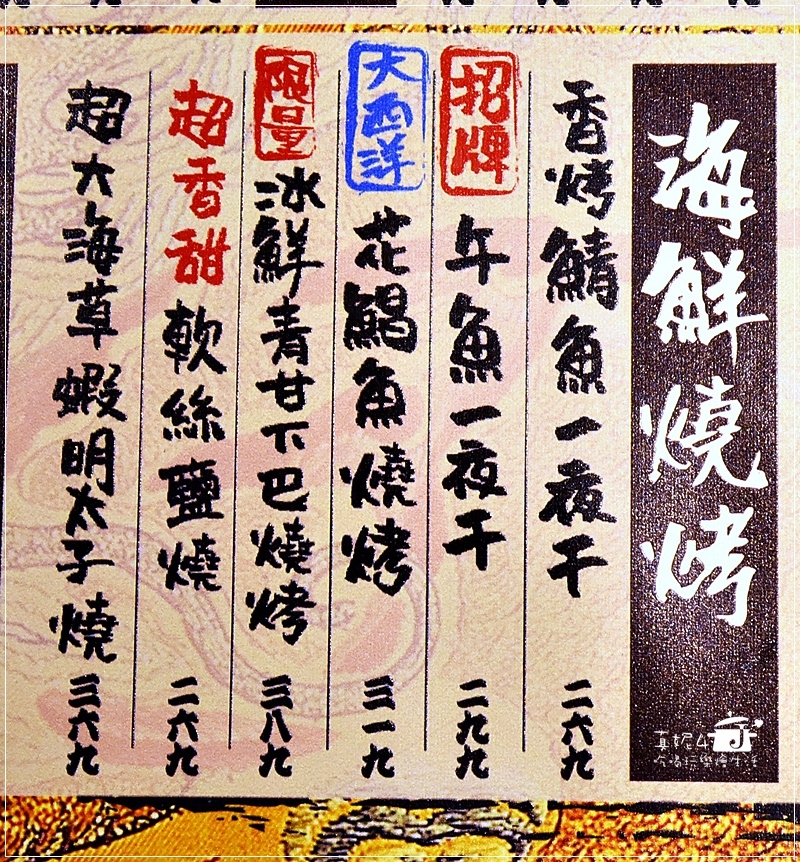 海鮮燒烤
香烤鯖魚一夜干 二六九
招牌 午魚一夜干 二九九
大西洋 花鯧魚燒烤 三一九
限量 冰鮮青甘下巴燒烤 三八九
超香甜 軟絲鹽燒 二六九
超大海草蝦明太子燒 三六九
吃喝玩樂繪生活